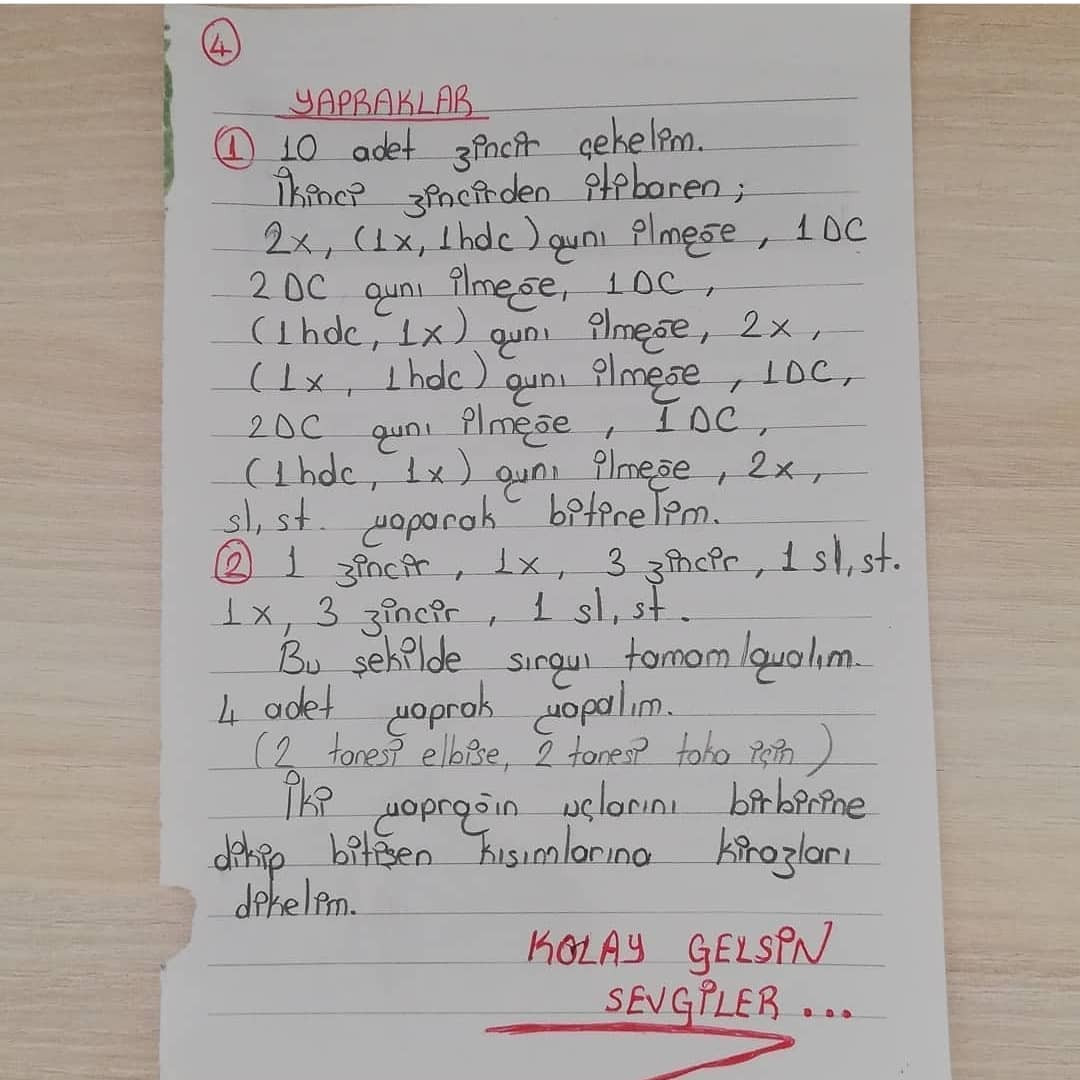 4
YAPRAKLAR
1 10 adet zincir çekelim.
İkinci zincirden itibaren ;
2x, (1x, 1hdc) aynı ilmeğe , 1DC
2DC aynı ilmeğe, 1DC ,
(1hdc, 1x) aynı ilmeğe, 2x ,
(1x , 1hdc) aynı ilmeğe , 1DC,
2DC aynı ilmeğe , 1DC ,
(1hdc, 1x) aynı ilmeğe , 2x ,
sl, st. yaparak bitirelim.
2 1 zincir , 1x, 3 zincir , 1 sl, st.
1x, 3 zincir , 1 sl, st .
Bu şekilde sırayı tamamlayalım.
4 adet yaprak yapalım.
(2 tanesi elbise, 2 tanesi toka için)
İki yaprağın uçlarını birbirine
dikip bitişen kısımlarına kirazları
dikelim.
KOLAY GELSİN
SEVGİLER ...